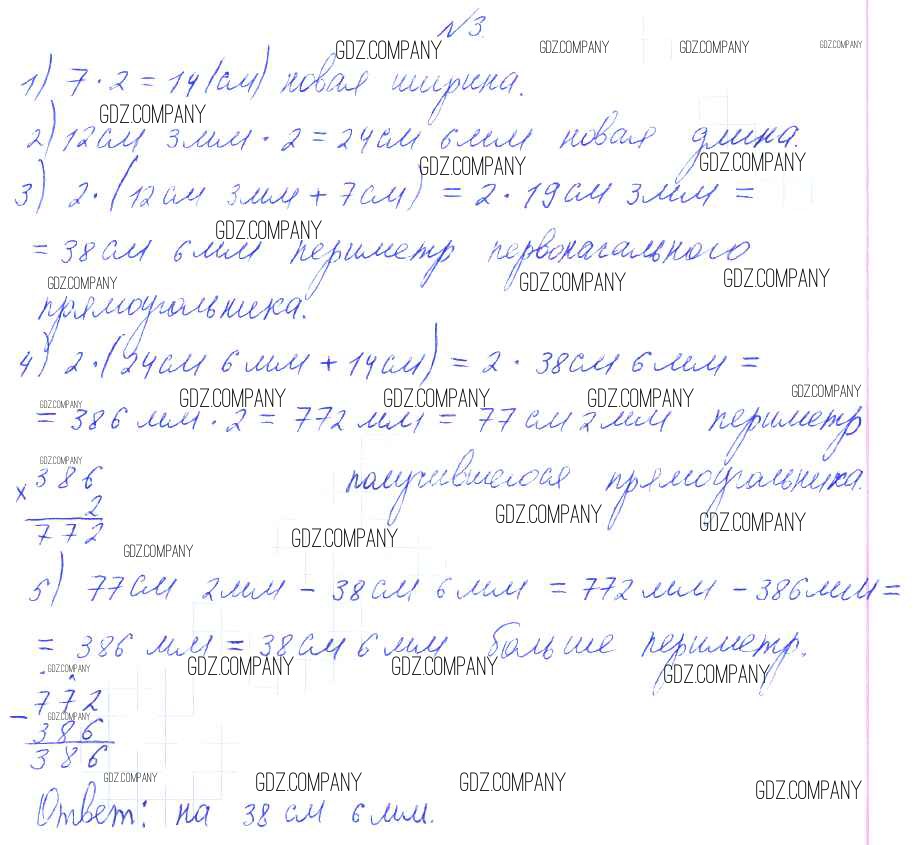 №3.
GDZ.COMPANY GDZ.COMPANY GDZ.COMPANY GDZ.COMPANY
1) 7 · 2 = 14 (см) новая ширина.
GDZ.COMPANY
2) 12 см 3 мм · 2 = 24 см 6 мм новая длина.
GDZ.COMPANY GDZ.COMPANY
3) 2 · (12 см 3 мм + 7 см) = 2 · 19 см 3 мм =
GDZ.COMPANY
= 38 см 6 мм периметр первоначального
GDZ.COMPANY GDZ.COMPANY GDZ.COMPANY
прямоугольника.
4) 2 · (24 см 6 мм + 14 см) = 2 · 38 см 6 мм =
GDZ.COMPANY GDZ.COMPANY GDZ.COMPANY GDZ.COMPANY GDZ.COMPANY
= 386 мм · 2 = 772 мм = 77 см 2 мм периметр
GDZ.COMPANY
× 386 получившегося прямоугольника.
2
GDZ.COMPANY GDZ.COMPANY
772
GDZ.COMPANY GDZ.COMPANY
5) 77 см 2 мм - 38 см 6 мм = 772 мм - 386 мм =
= 386 мм = 38 см 6 мм больше периметр.
GDZ.COMPANY GDZ.COMPANY GDZ.COMPANY GDZ.COMPANY
- 772
GDZ.COMPANY
386
386
GDZ.COMPANY GDZ.COMPANY GDZ.COMPANY GDZ.COMPANY
Ответ: на 38 см 6 мм.